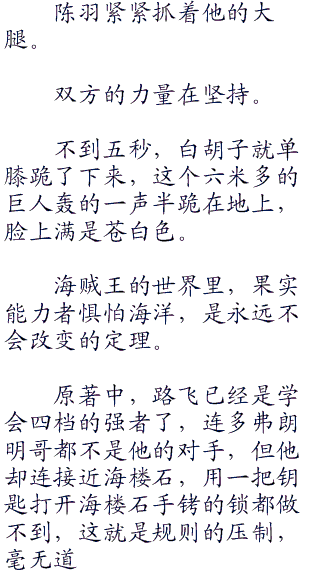 陈羽紧紧抓着他的大
腿。
双方的力量在坚持。
不到五秒，白胡子就单
膝跪了下来，这个六米多的
巨人轰的一声半跪在地上，
脸上满是苍白色。
海贼王的世界里，果实
能力者惧怕海洋，是永远不
会改变的定理。
原著中，路飞已经是学
会四档的强者了，连多弗朗
明哥都不是他的对手，但他
却连接近海楼石，用一把钥
匙打开海楼石手铐的锁都做
不到，这就是规则的压制，
毫无道